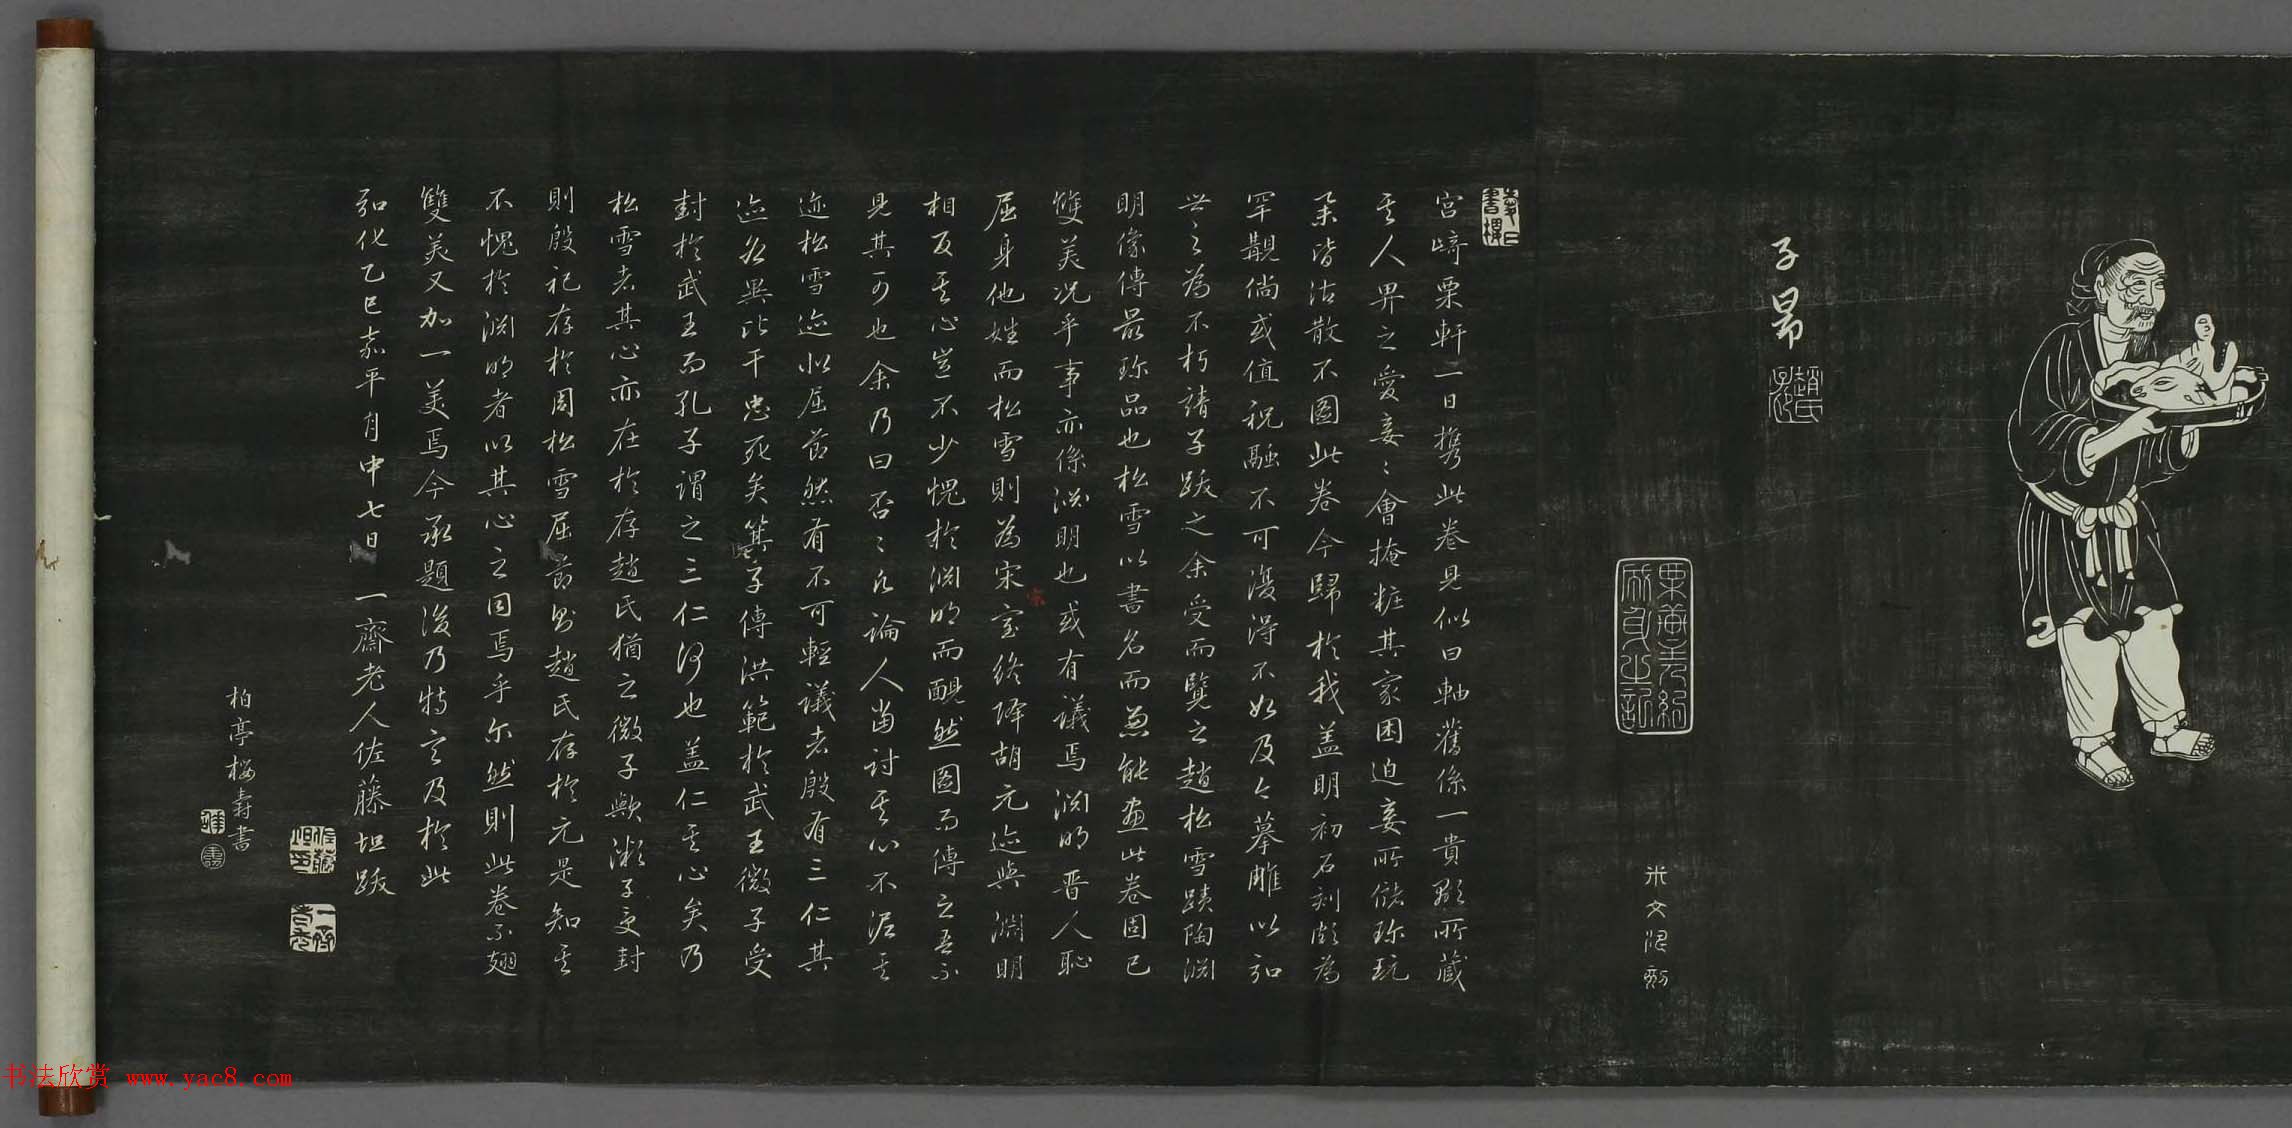 子昂
趙氏子昂
米文佀刻
宮﨑栗軒一日携此卷見似曰軸舊係一貴縣所藏
其人畀之愛妾〻會掩粧其家困迫妾所儲珍玩
朶皆沽散不圖此卷今歸於我盖明初石刻頗為
罕覯倘或值祝融不可復得不如及今摹雕以弘
世之為不朽請子跋之余受而覽之趙松雪蹟陶淵
明像傳最珍品也松雪以書名而兼能畫此卷固已
雙美況乎事亦係淵明也或有議焉淵明晋人恥
屈身他姓而松雪則為宋室終降胡元迹與淵明
相反其心豈不少愧於淵明而靦然圖而傳之吾不
見其可也余乃曰否〻凡論人當討其心不泥其
迹松雪迹似屈節然有不可輕議者殷有三仁其
迹各異比干忠死矣箕子傳洪範於武王微子受
封於武王而孔子謂之三仁何也盖仁其心矣乃
松雪者其心亦在於存趙氏猶之微子歟微子受封
則殷祀存於周松雪屈節則趙氏存於元是知其
不愧於淵明者以其心之同焉乎尔然則此卷不翅
雙美又加一美焉今承題後乃特言及於此
弘化乙巳嘉平月中七日 一齋老人佐藤坦跋
柏亭桜壽書
书法欣赏 www.yac8.com